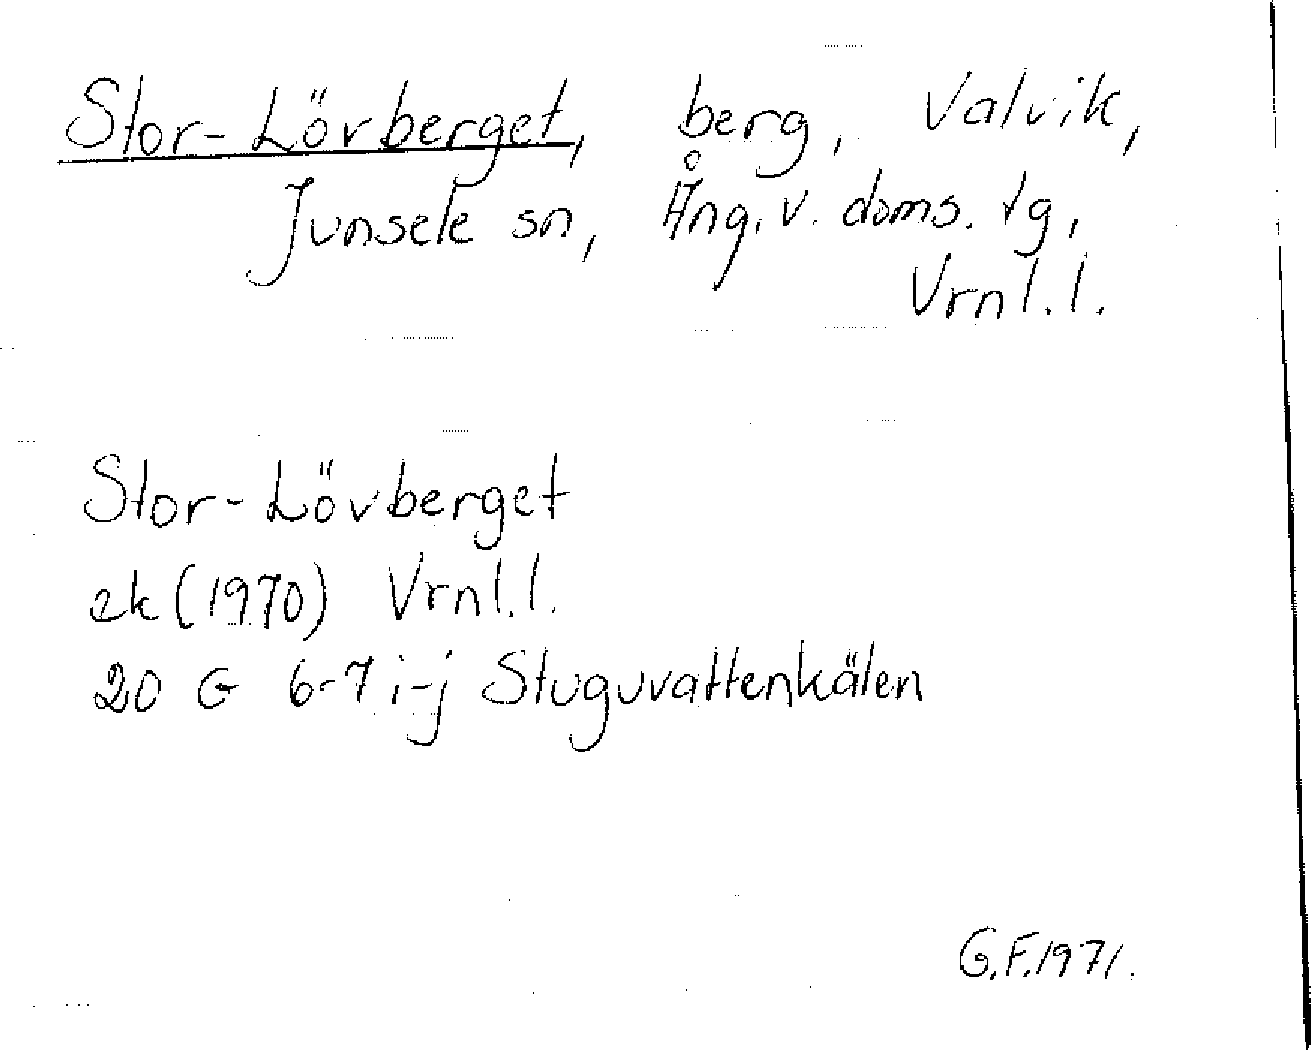 Stor-Lövberget, berg, Valvik,
Junsele sn, Ång. v. doms. tg,
Vrnl. l.
Stor-Lövberget
ek (1970) Vrnl. l.
20 G 6-7 i-j Stuguvattenkälen
G.F.1971.